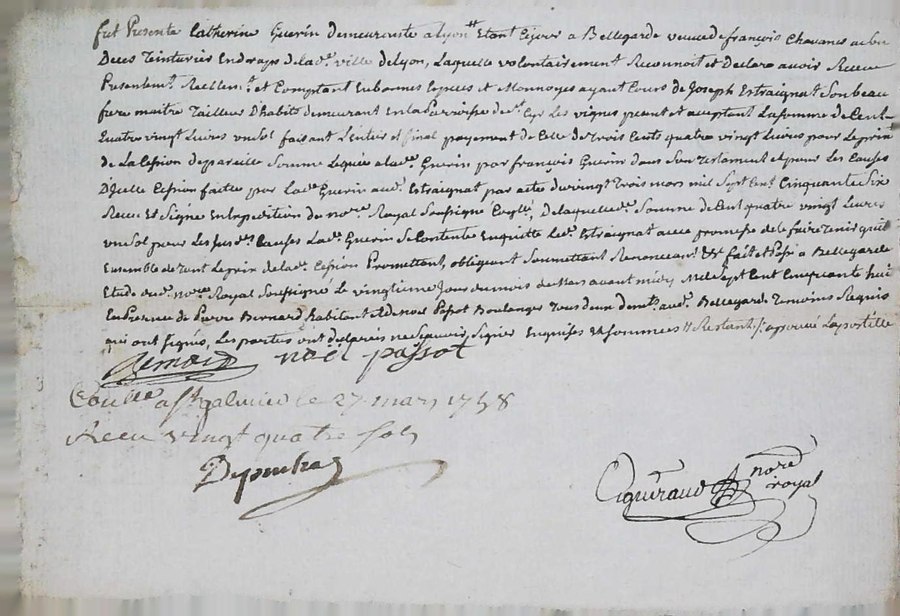 fut Presente Catherine Guerin demeurante a Lyon Etant Ce jour a Bellegarde veuve de françois Chavanes
Deces Teinturier En draps de lad.e ville de Lyon, Laquelle volontairement Reconnoit et Declare avoir Receu
Presentem.t Reellem.t et Comptant En bonnes Especes et Monnoyes ayant Cours de Joseph Estraignat Son beau
frere maitre Tailleur D'habits demeurant En la Parroisse de S.t Cyr Les vignes present et aceptant La Somme de Cent
quatre vingt Livres un Sol faisant L'entier et final payement de Celle de Trois Cents quatre vingt Livres pour Le prix
de La Cession de pareille Somme Leguée a lad.e Guerin par françois Guerin dans Son Testament et pour Les Causes
D'Icelle Cession faitte par Lad.e Guerin aud. Estraignat par acte du vingt Trois mars mil Sept Cent Cinquante Six
Receu Et Signé En Expedition du no.re Royal Soussigné de laquelle d.e Somme de Cent quatre vingt Livres
un Sol pour Les Susd.es Causes Lad.e Guerin Se Contente En quitte Led. Estraignat avec promesse de le faire Tenir quit
Ensemble de Tout Le prix de lad.e Cession Promettant, obligeant Soumettant Renonceant &.a fait et Passé a Bellegarde
Etude du d. no.re Royal Soussigné Le vingtieme Jour du mois de Mars avant midy Mil Sept Cent Cinquante huit
En Presence de Pierre Bernard habitant et de noel Passot Boulanger Tous deux dem.ts aud. Bellegarde Temoins Requis
qui ont Signés, Les parties ont declarés ne Scavoir Signer Enquises et Sommees Restant approuvé La postille
Bernard noel passot
Coullé a S.t galmier le 27 mars 1758
Receu vingt quatre sols
nore
royal